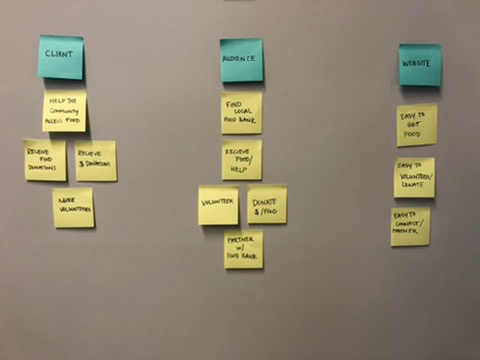 CLIENT
HELP THE
COMMUNITY
ACCESS FOOD
RECEIVE
FOOD
DONATIONS
RECIEVE
$ DONATIONS
MORE
VOLUNTEERS
AUDIENCE
FIND
LOCAL
FOOD BANK
RECIEVE
FOOD/
HELP
VOLUNTEER
DONATE
$/FOOD
PARTNER
W/
FOOD BANK
WEBSITE
EASY TO
GET
FOOD
EASY TO
VOLUNTEER/
DONATE
EASY TO
CONNECT/
PARTNER